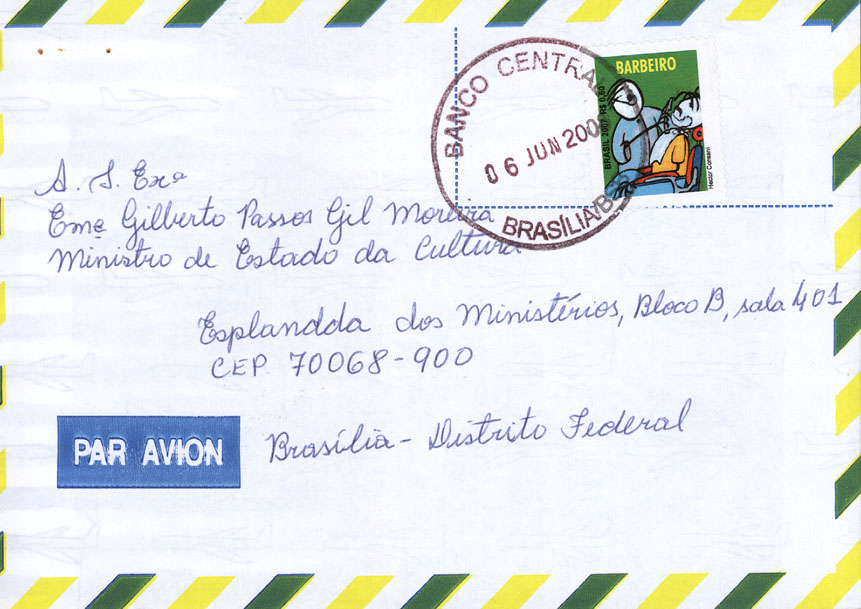 BANCO CENTRAL
06 JUN 200
BRASÍLIA/B
BARBEIRO
BRASIL 2007 R$ 0,60
Hector Consani
A. S. Exª
Emª Gilberto Passos Gil Moreira
Ministro de Estado da Cultura
Esplandda dos Ministérios, Bloco B, sala 401
CEP. 70068-900
PAR AVION
Brasília - Distrito Federal